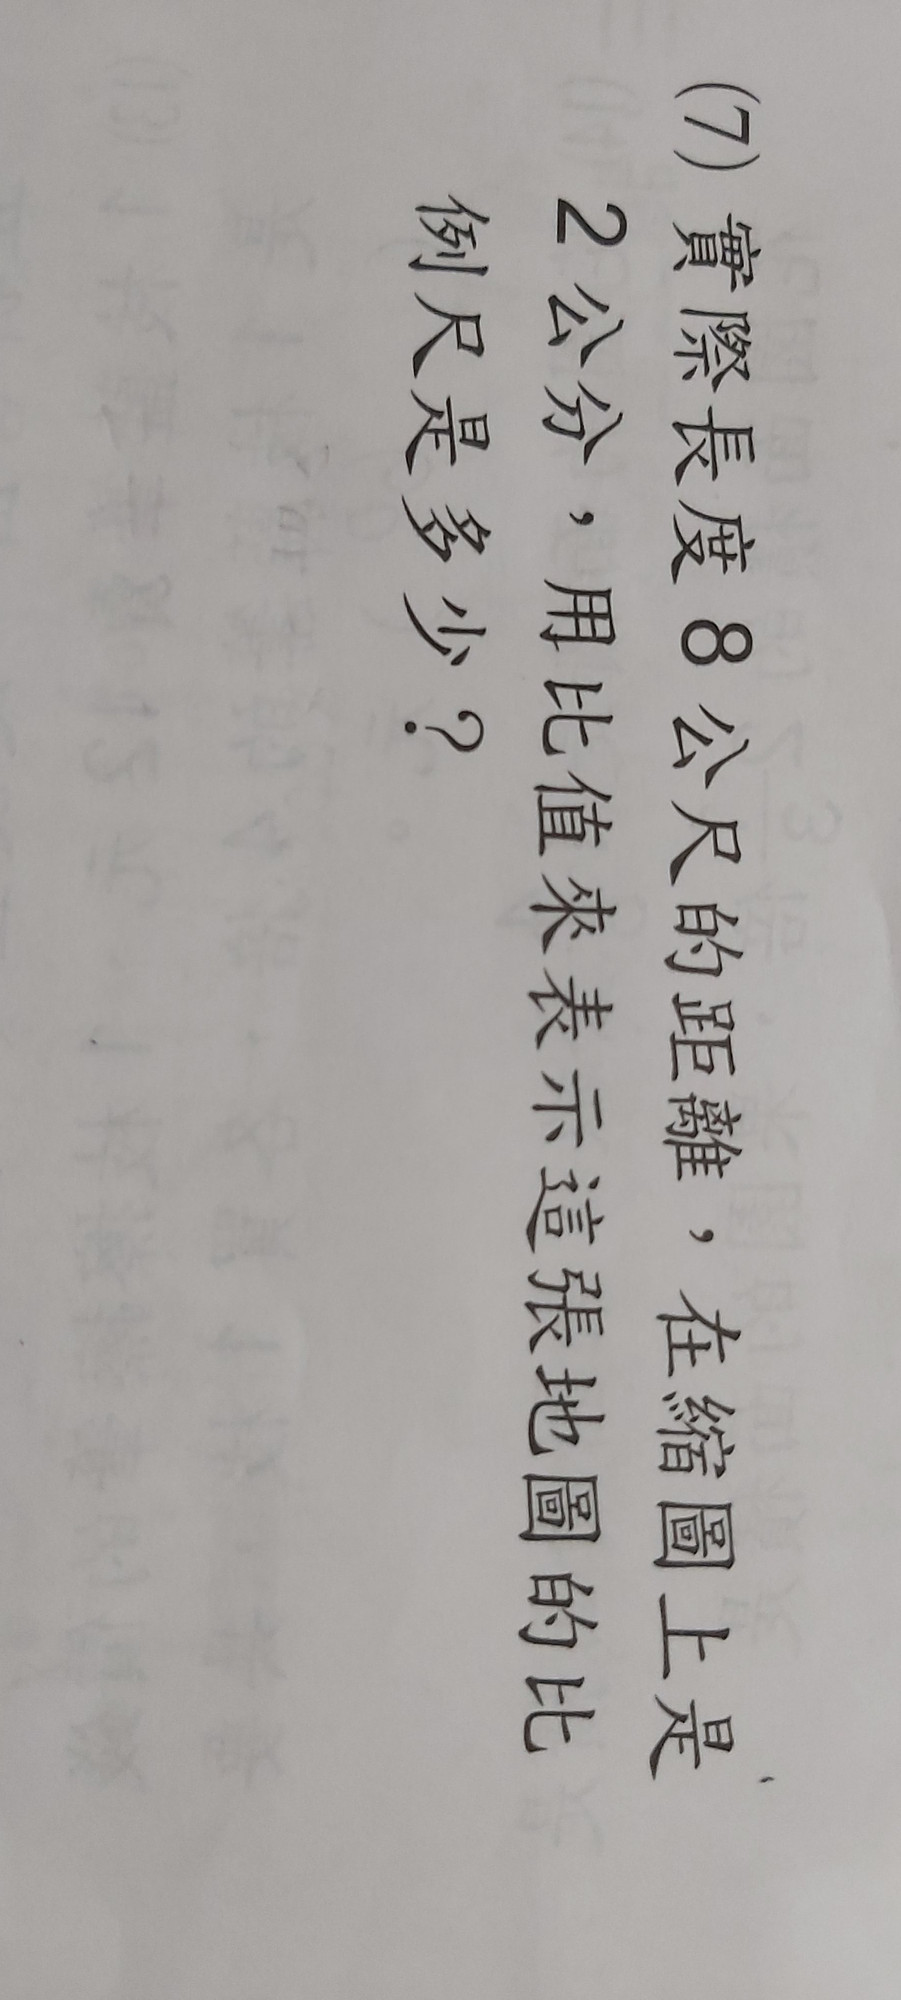 (7) 實際長度 8 公尺的距離，在縮圖上是
2 公分，用比值來表示這張地圖的比
例尺是多少？